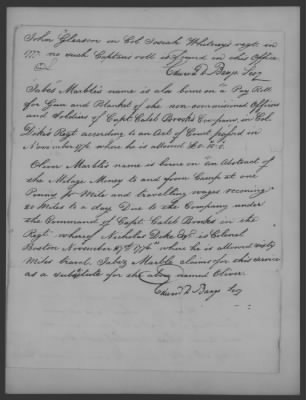 John Gleason in Col. Josiah Whitney's regt. in
1777. no such Captains roll is found in this Office
Edward D Bangs Secy
Jabez Marble's name is also borne on a Pay Roll
for Gun and Blanket of the non-commissioned Officers
and Soldiers of Capt Caleb Brooks Company, in Col
Dike's Regt according to an Act of Court passed in
November 1776 where he is allowed
Oliver Marble's name is borne on an abstract of
the Milage Money to and from Camp at one
Penny pr Mile and travelling wages reconing
20 Miles to a day Due to the Company under
the Command of Capt. Caleb Brooks in the
Regt. whereof Nicholas Dike Esqr is Colonel
Boston November 27th 1776 where he is allowed sixty
Miles travel. Jabez Marble claims for this service
as a substitute for the above named Oliver.
Edward D Bangs Secy